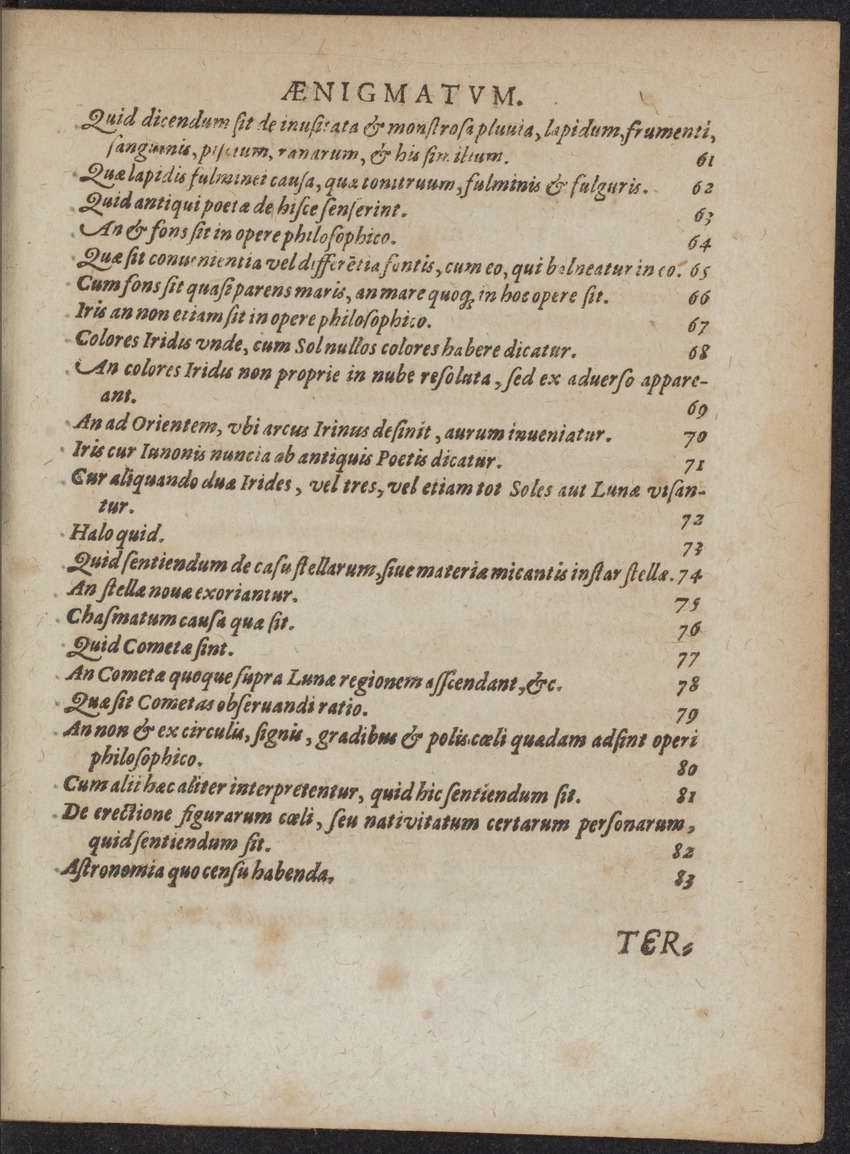 ÆNIGMATVM.
Quid dicendum ſit de inuſitata & monſtroſa pluuia, lapidum, frumenti,
ſanguinis, piſcium, ranarum, & his ſimilium. 61
Quæ lapidis fulminei cauſa, quæ tonitruum, fulminis & fulguris. 62
Quid antiqui poetæ de hiſce ſenſerint. 63
An & fons ſit in opere philoſophico. 64
Quæ ſit conuenientia vel differētia fontis, cum eo, qui balneatur in eo. 65
Cum fons ſit quaſi parens maris, an mare quoq; in hoc opere ſit. 66
Iris an non etiam ſit in opere philoſophico. 67
Colores Iridis vnde, cum Sol nullos colores habere dicatur. 68
An colores Iridis non proprie in nube reſoluta, ſed ex aduerſo appare-
ant. 69
An ad Orientem, vbi arcus Irinus deſinit, aurum inueniatur. 70
Iris cur Iunonis nuncia ab antiquis Poetis dicatur. 71
Cur aliquando duæ Irides, vel tres, vel etiam tot Soles aut Lunæ viſan-
tur. 72
Halo quid. 73
Quid ſentiendum de caſu ſtellarum, ſiue materiæ micantis inſtar ſtellæ. 74
An ſtellæ nouæ exoriantur. 75
Chaſmatum cauſa quæ ſit. 76
Quid Cometæ ſint. 77
An Cometæ quoque ſupra Lunæ regionem aſſcendant, &c. 78
Quæ ſit Cometas obſeruandi ratio. 79
An non & ex circulis, ſignis, gradibus & polis cæli quædam adſint operi
philoſophico. 80
Cum alii hæc aliter interpretentur, quid hic ſentiendum ſit. 81
De erectione figurarum cæli, ſeu nativitatum certarum perſonarum,
quid ſentiendum ſit. 82
Aſtronomia quo cenſu habenda, 83
TER-